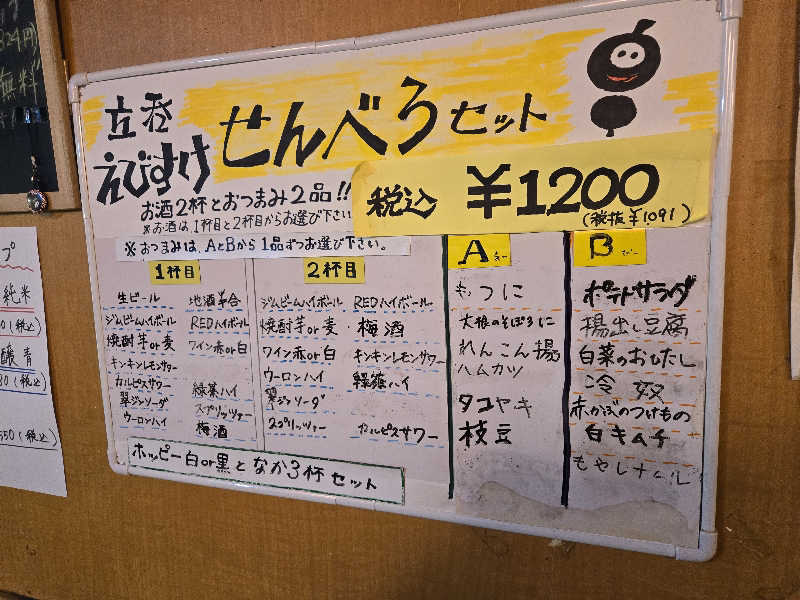 立呑
えびすけ
せんべろセット
お酒2杯とおつまみ2品!!
※お酒は1杯目と2杯目からお選び下さい
税込 ¥1200
(税抜¥1091)
※おつまみは、AとBから1品ずつお選び下さい。
1杯目
生ビール
ジムビームハイボール
焼酎芋or麦
キンキンレモンサワー
カルピスサワー
翠ジンソーダ
ウーロンハイ
地酒半合
REDハイボール
ワイン赤or白
緑茶ハイ
スプリッツァー
梅酒
2杯目
ジムビームハイボール
焼酎芋or麦
ワイン赤or白
ウーロンハイ
翠ジンソーダ
スプリッツァー
REDハイボール
梅酒
キンキンレモンサワー
緑茶ハイ
カルピスサワー
ホッピー白or黒となか3杯セット
A
もつに
大根のそぼろに
れんこん揚
ハムカツ
タコヤキ
枝豆
B
ポテトサラダ
揚出し豆腐
白菜のおひたし
冷奴
赤かぶのつけもの
白キムチ
もやしナムル
無料
純米
(税込)
(税込)
550(税込)